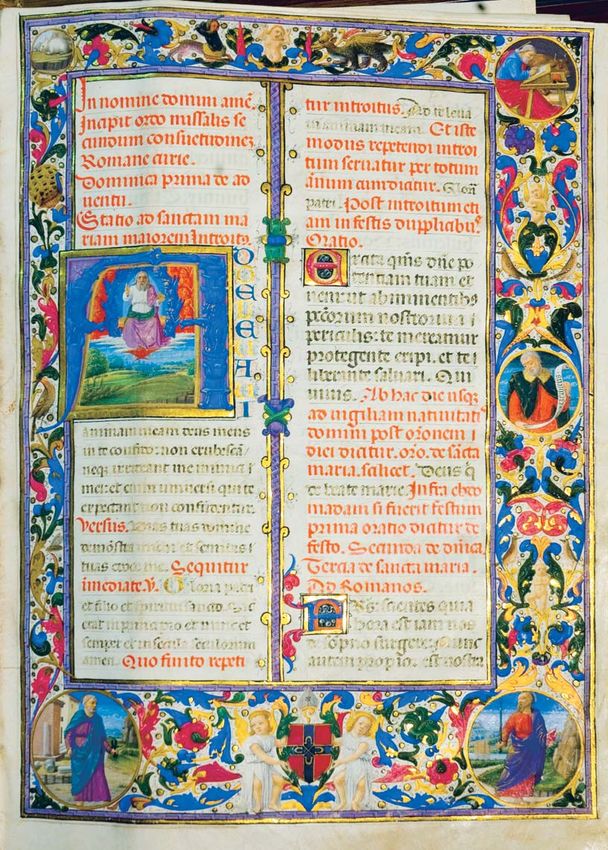 In nomine domini amē.
Incipit ordo missalis se
cundum consuetudinez
Romane curie.
Dominica prima de ad
uentu.
Statio ad sanctam ma
riam maiorem Introitꝰ.
AD TE LEVAVI
animam meam deus meus
in te confido: non erubescā/
neqꝫ irrideant me inimici
mei: et enim uniuersi qui te
expectant non confundentur.
Versus. Vias tuas domine
demōstra michi et semitas
tuas edoce me. Sequitur
īmediate. V. Gloria patri
et filio et spiritui sancto. Sic
erat in principio et nunc et
semper et in secula seculorum
amen. Quo finito repeti
tur introitus. Ad te leua
ui animam meam. Et iste
modus repetendi introi
tum seruatur per totum
ānum cum dicitur. Glori
patri. Post introitum eti
am in festis dupplicibꝰ.
Oratio.
Excita quīs dñe po
tentiam tuam et
ueni: ut ab imminentibꝰ
peccatorum nostrorum
periculis: te mereamur
protegente eripi. et te li
berante saluari. Qui
uiuis. Ab hac die usqꝫ
ad uigiliam natiuitatꝭ
domini post orōnem
diei dicitur. oro. de sācta
maria. scilicet. Deus q̄
de beate marie. Infra ebdo
madam si fuerit festum
prima oratio dicitur de
festo. Secunda de dn̄ica
Tercia de sancta maria.
Ad Romanos.
Fr̄es: Scientes quia
hora est iam nos
de sopno surgere. Nunc
autem propior est nostra